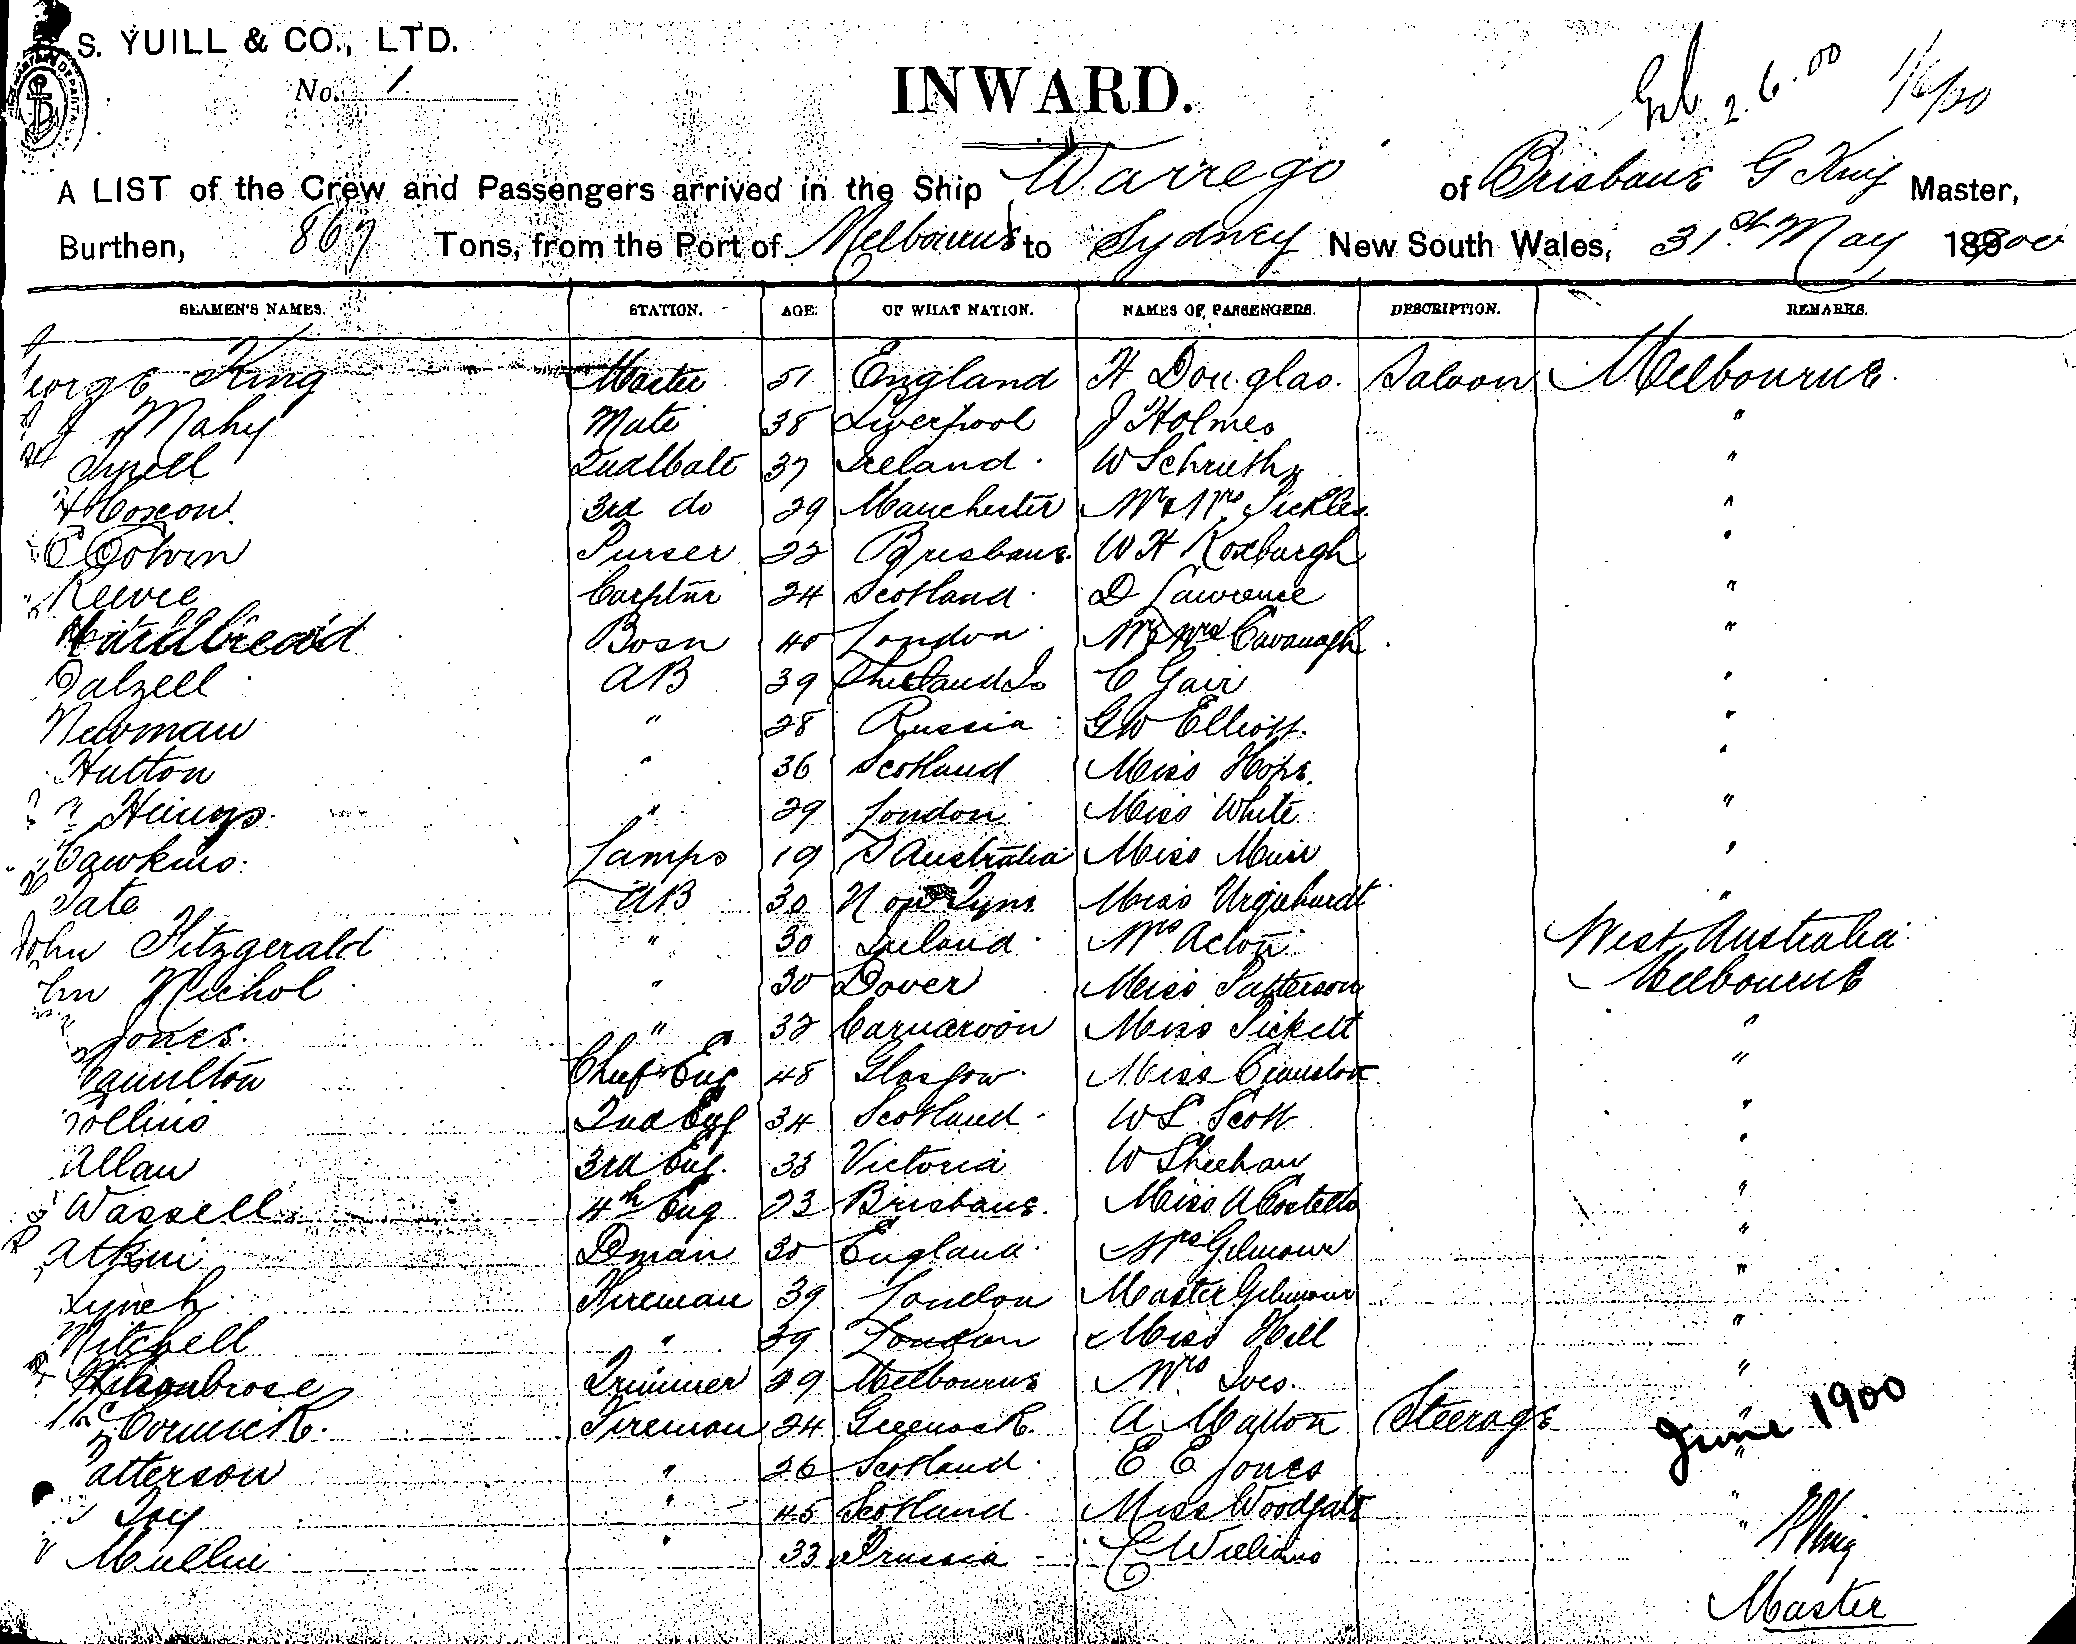 S. YUILL & CO., LTD.
No. 1
INWARD.
2.6.00 1/6/00
A LIST of the Crew and Passengers arrived in the Ship Warrego of Brisbane G King Master,
Burthen, 869 Tons, from the Port of Melbourne to Sydney New South Wales, 31st May 1900
SEAMEN'S NAMES. STATION. AGE. OF WHAT NATION. NAMES OF PASSENGERS. DESCRIPTION. REMARKS.
George King Master 51 England H Douglas. Saloon Melbourne.
J Mahy Mate 38 Liverpool J Holmes "
Tyrell 37 Ireland. W "
3rd do 29 Manchester Mr & Mrs Sickles "
Purser 22 Brisbane. W H Roxburgh "
Reevie Carpntr 24 Scotland. D Lawrence "
Bosn 40 London. Mr & Mrs Cavanagh "
Dalzell AB 39 Shetland Is C Gair "
Newman " 28 Russia G W Elliott. "
Hutton " 36 Scotland Miss Hope. "
" 29 London Miss White "
Hawkins. Lamps 19 S Australia Miss Muir "
Tate AB 30 Miss Urquhardt "
John Fitzgerald " 30 Ireland. Mrs Acton West Australia
Nichol " 30 Dover Miss Patterson Melbourne
Jones. " 32 Carnarvon Miss Pickett "
Hamilton Chief Eng 48 Glasgow. Miss "
Collins 2nd Eng 34 Scotland. W L Scott "
Allan 3rd Eng. 33 Victoria W Sheehan "
Wassell 4th Eng 23 Brisbane. Miss A Costello "
Atkin Dman 30 England. Mrs Gilmour "
Lynch Fireman 39 London Master Gilmour "
Mitchell " 39 London Miss Hill "
Trimmer 29 Melbourne Mrs Ives. "
McCormick. Fireman 24 Greenock. A Mallon Steerage "
June 1900
Patterson " 26 Scotland. E E Jones "
Ivy " 45 Scotland. Miss Woodgate "
Mullin " 33 Prussia C Williams "
G King
Master